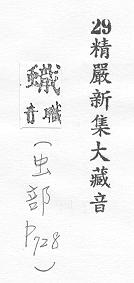 29精嚴新集大藏音
蟙
音職
(虫部
P.728)